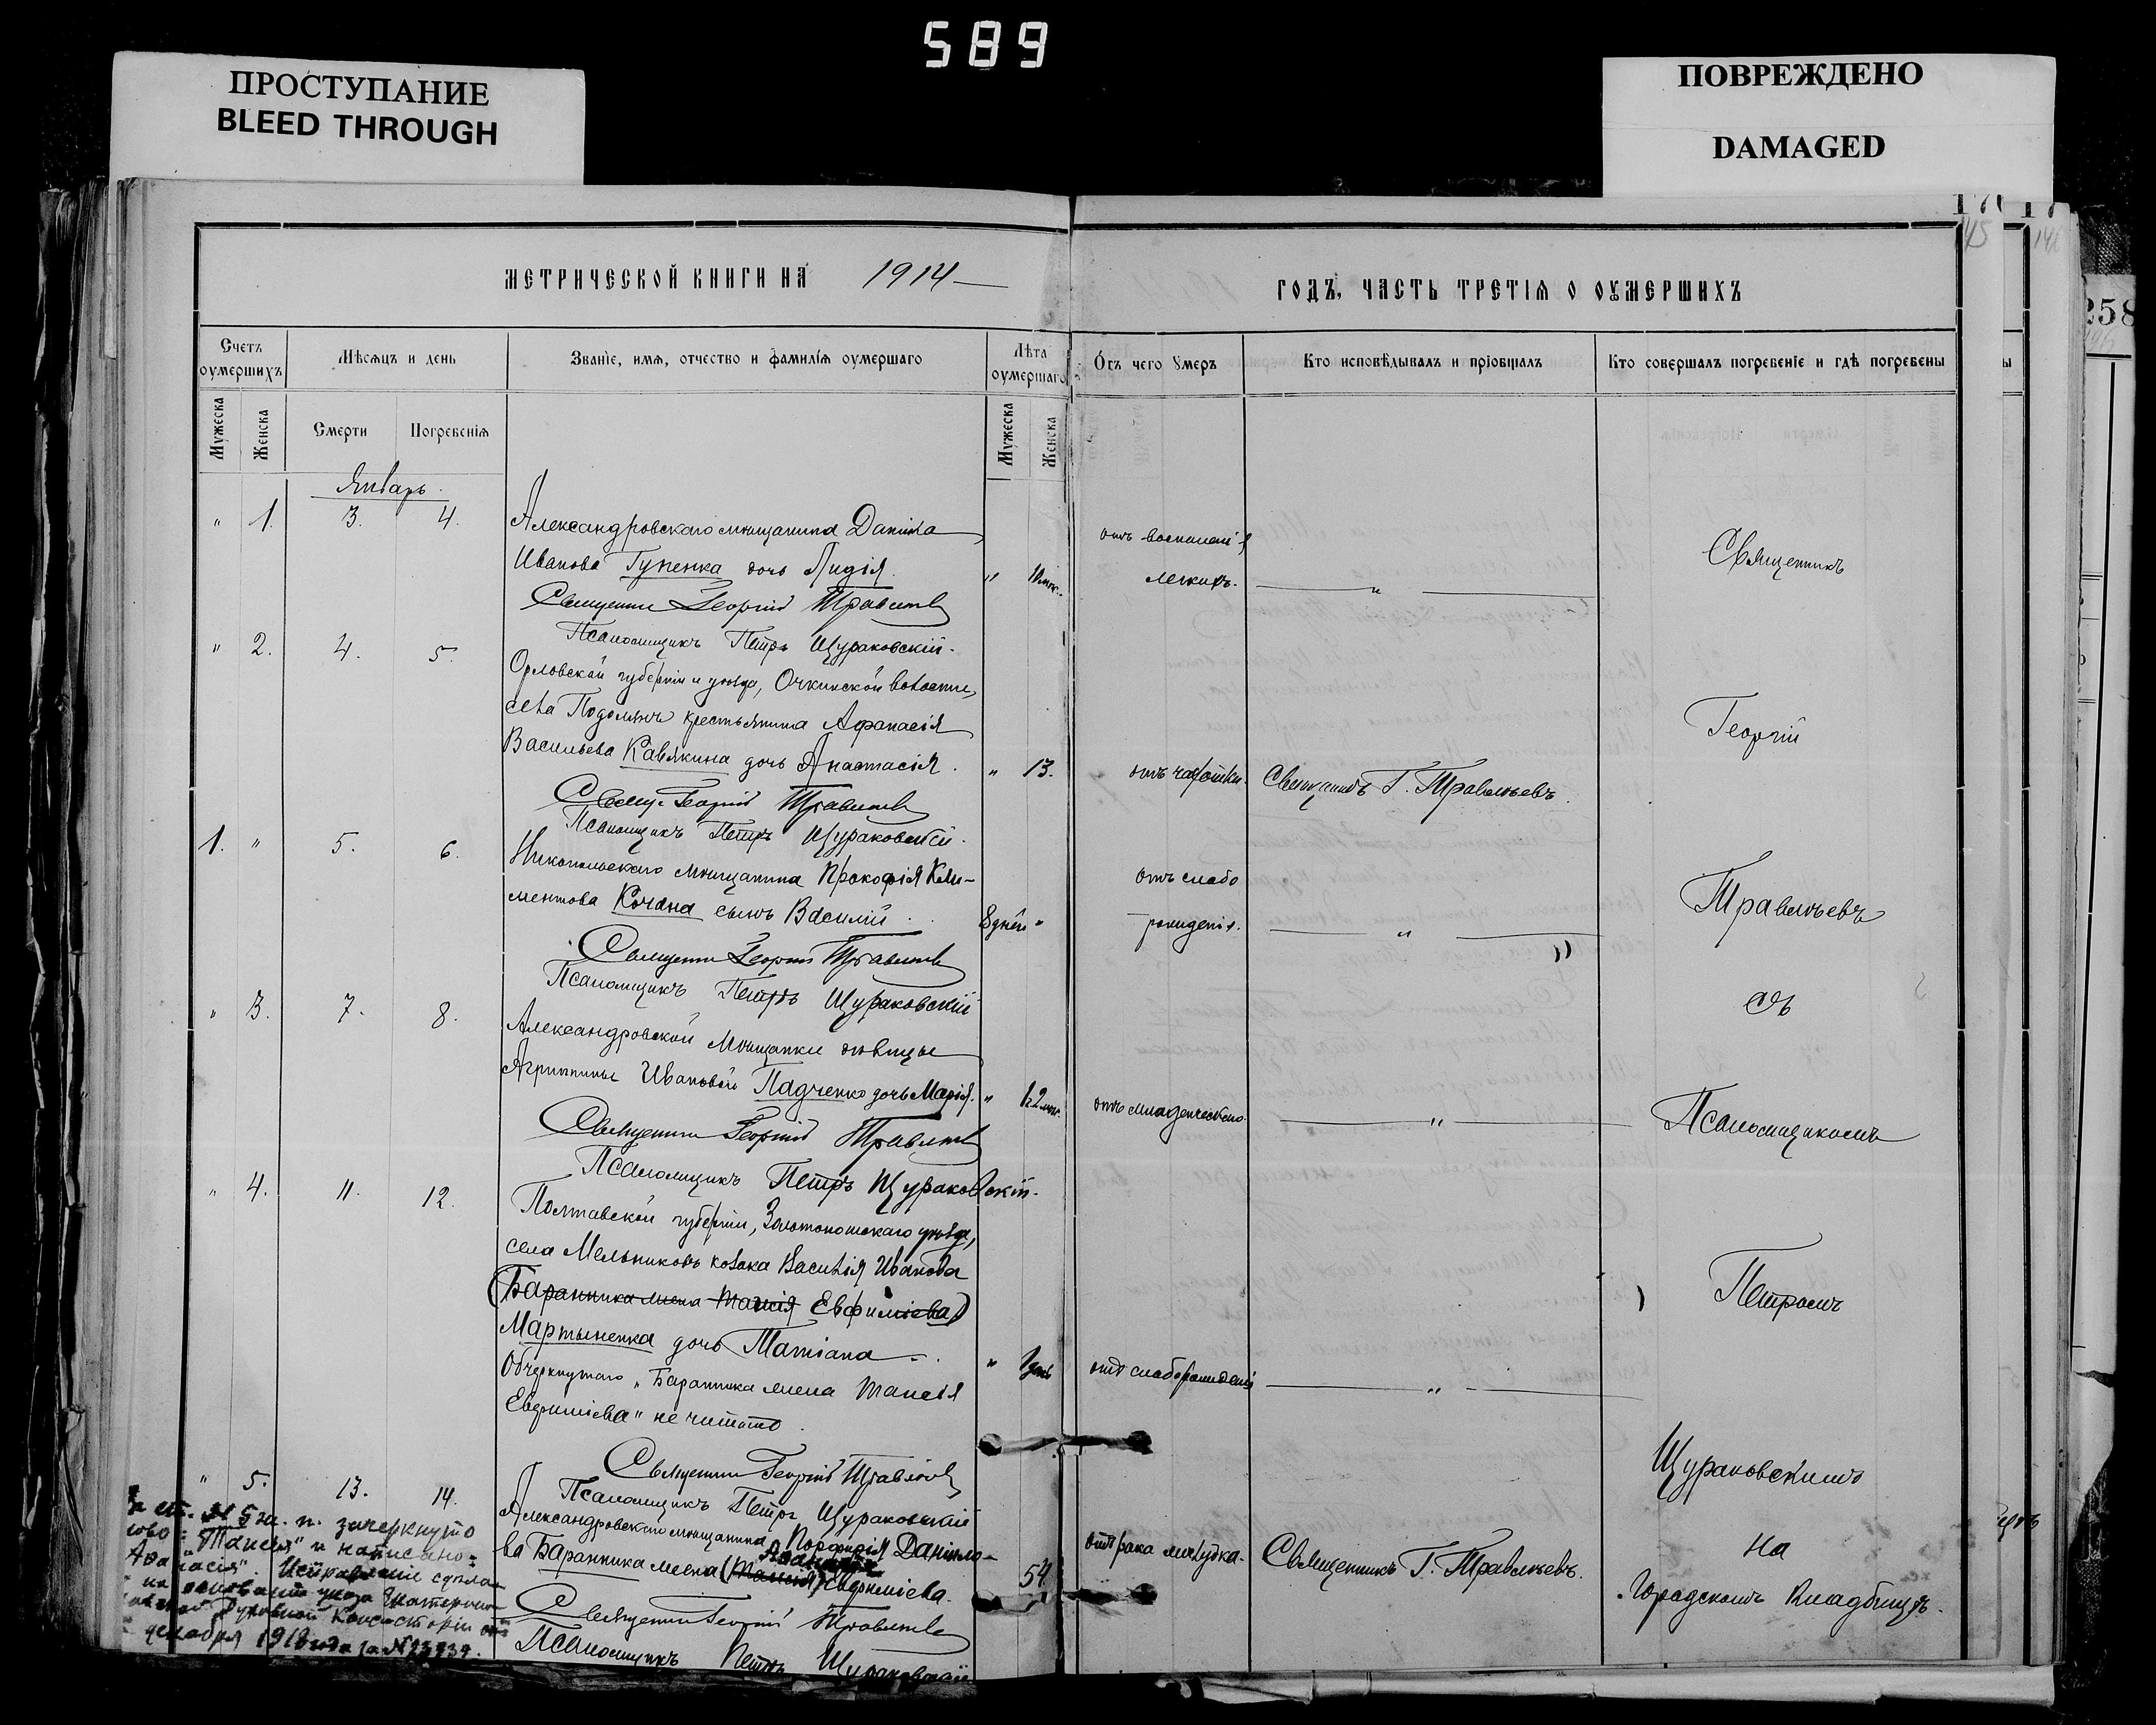 589
ПРОСТУПАНИЕ
BLEED THROUGH
ПОВРЕЖДЕНО
DAMAGED
258
МЕТРИЧЕСКОЙ КНИГИ НА 1914
ГОДЪ, ЧАСТЬ ТРЕТІЯ О ОУМЕРШИХЪ
Счетъ оумершихъ
Мѣсяцъ и день
Званіе, имя, отчество и фамилія оумершаго
Лѣта оумершаго
Отъ чего умеръ
Кто исповѣдывалъ и пріобщалъ
Кто совершалъ погребеніе и гдѣ погребены
Мужеска
Женска
Смерти
Погребенія
Мужеска
Женска
Январь.
" 1. 3. 4.
Александровскаго мѣщанина Даніила
Иванова Гупенка дочь Лидія.
отъ воспаленія
легкихъ.
Священникъ Георгій Травлѣевъ
Псаломщикъ Петръ Щураковскій.
" 2. 4. 5.
Орловской губерніи и уѣзда, Очкинской волости,
села Подолянъ крестьянина Афанасія
Васильева Кавякина дочь Анастасія.
" 13.
отъ чахотки.
Священникъ Г. Травлѣевъ.
Свящ. Георгій Травлѣевъ
Псаломщикъ Петръ Щураковскій.
1. " 5. 6.
Никопольскаго мѣщанина Прокофія Кли-
ментова Кочана сынъ Василій.
8 дней "
отъ слабо
рожденія.
Священникъ Георгій Травлѣевъ
Псаломщикъ Петръ Щураковскій
" 3. 7. 8.
Александровской мѣщанки дѣвицы
Агриппины Ивановой Падченко дочь Марія.
отъ младенческаго.
Священникъ Георгій Травлѣевъ
Псаломщикъ Петръ Щураковскій.
" 4. 11. 12.
Полтавской губерніи, Золотоношскаго уѣзда,
села Мельниковъ козака Василія Иванова
(Баранника жена Таисія Евфиміева)
Мартыненка дочь Татіана.
" 1 день
отъ слаборожденія
Обчеркнутаго "Баранника жена Таисія
Евфиміева" не читать.
Священникъ Георгій Травлѣевъ
Псаломщикъ Петръ Щураковскій
" 5. 13. 14.
Александровскаго мѣщанина Порфирія Даніило-
ва Баранника жена (Таисія) Евфиміева.
54
отъ рака желудка.
Священникъ Г. Травлѣевъ.
Священникъ Георгій Травлѣевъ
Псаломщикъ Петръ Щураковскій
ст. № 5 ж. п. зачеркнуто
"Таисія" и написано:
Исправленіе сдѣла-
на основаніи указа Екатерино-
Духовной Консисторіи отъ
декабря 1918 года за №
Священникъ
Георгій
Травлѣевъ
съ
Псаломщикомъ
Петромъ
Щураковскимъ
на
Городскомъ Кладбищѣ.